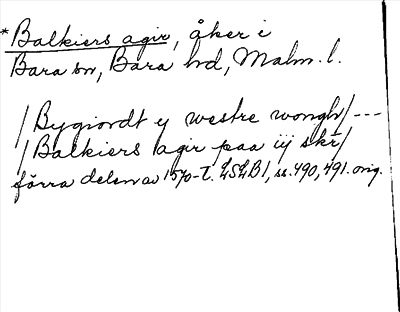 *Balkiers agir, åker i
Bara sn, Bara hd, Malm. l.
/Bygiordt y westre wongh/---
/Balkiers agir paa iij skr/
förra delen av 1570-t. LSLB1, ss. 490, 491. orig.